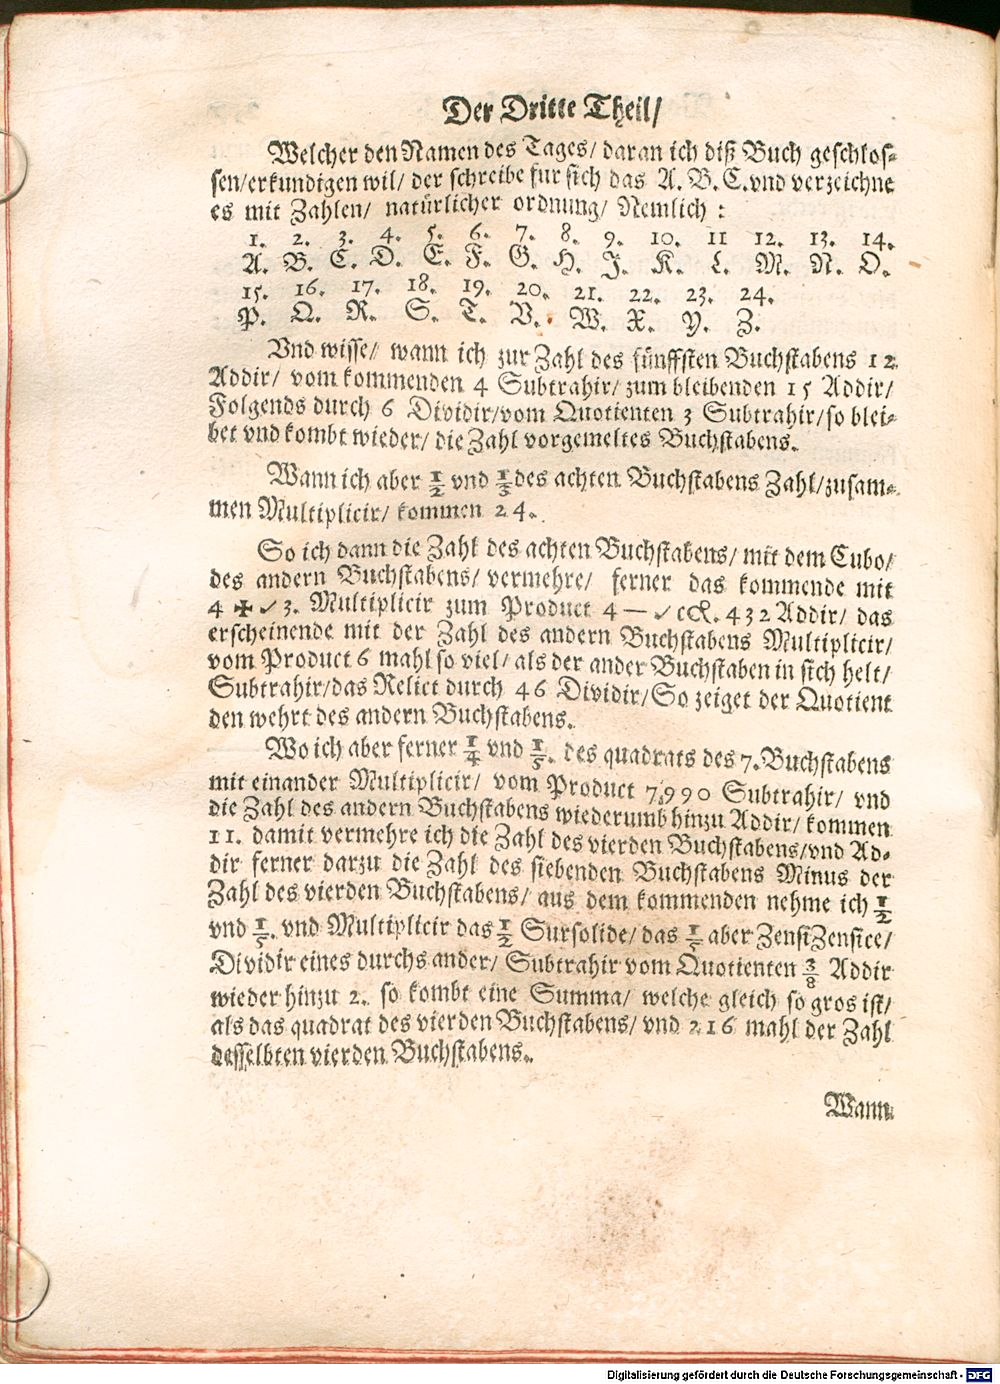 Der Dritte Theil/
Welcher den Namen des Tages/ daran ich diß Buch geschlos-
sen/erkundigen wil/ der schreibe fur sich das A. B. C. vnd verzeichne
es mit Zahlen/ natürlicher ordnung/ Nemlich :
1. 2. 3. 4. 5. 6. 7. 8. 9. 10. 11 12. 13. 14.
A. B. C. D. E. F. G. H. J. K. L. M. N. O.
15. 16. 17. 18. 19. 20. 21. 22. 23. 24.
P. Q. R. S. T. V. W. X. Y. Z.
Vnd wisse/ wann ich zur Zahl des fünfften Buchstabens 12
Addir/ vom kommenden 4 Subtrahir/ zum bleibenden 15 Addir/
Folgends durch 6 Dividir/vom Quotienten 3 Subtrahir/so blei-
bet vnd kombt wieder/ die Zahl vorgemeltes Buchstabens.
Wann ich aber 1/2 vnd 1/3 des achten Buchstabens Zahl/zusam-
men Multiplicir/ kommen 24.
So ich dann die Zahl des achten Buchstabens/ mit dem Cubo/
des andern Buchstabens/ vermehre/ ferner das kommende mit
4 ✠ ✓ 3. Multiplicir zum Product 4 — ✓ 432 Addir/ das
erscheinende mit der Zahl des andern Buchstabens Multiplicir/
vom Product 6 mahl so viel/ als der ander Buchstaben in sich helt/
Subtrahir/das Relict durch 46 Dividir/So zeiget der Quotient
den wehrt des andern Buchstabens.
Wo ich aber ferner 1/4 vnd 1/5. des quadrats des 7. Buchstabens
mit einander Multiplicir/ vom Product 7,990 Subtrahir/ vnd
die Zahl des andern Buchstabens wiederumb hinzu Addir/ kommen
11. damit vermehre ich die Zahl des vierden Buchstabens/vnd Ad-
dir ferner darzu die Zahl des siebenden Buchstabens Minus der
Zahl des vierden Buchstabens/ aus dem kommenden nehme ich 1/2
vnd 1/5. vnd Multiplicir das 1/2 Sursolide/ das 1/5 aber ZensiZensice/
Dividir eines durchs ander/ Subtrahir vom Quotienten 3/8 Addir
wieder hinzu 2. so kombt eine Summa/ welche gleich so gros ist/
als das quadrat des vierden Buchstabens/ vnd 216 mahl der Zahl
desselbten vierden Buchstabens.
Wann
Digitalisierung gefördert durch die Deutsche Forschungsgemeinschaft - DFG